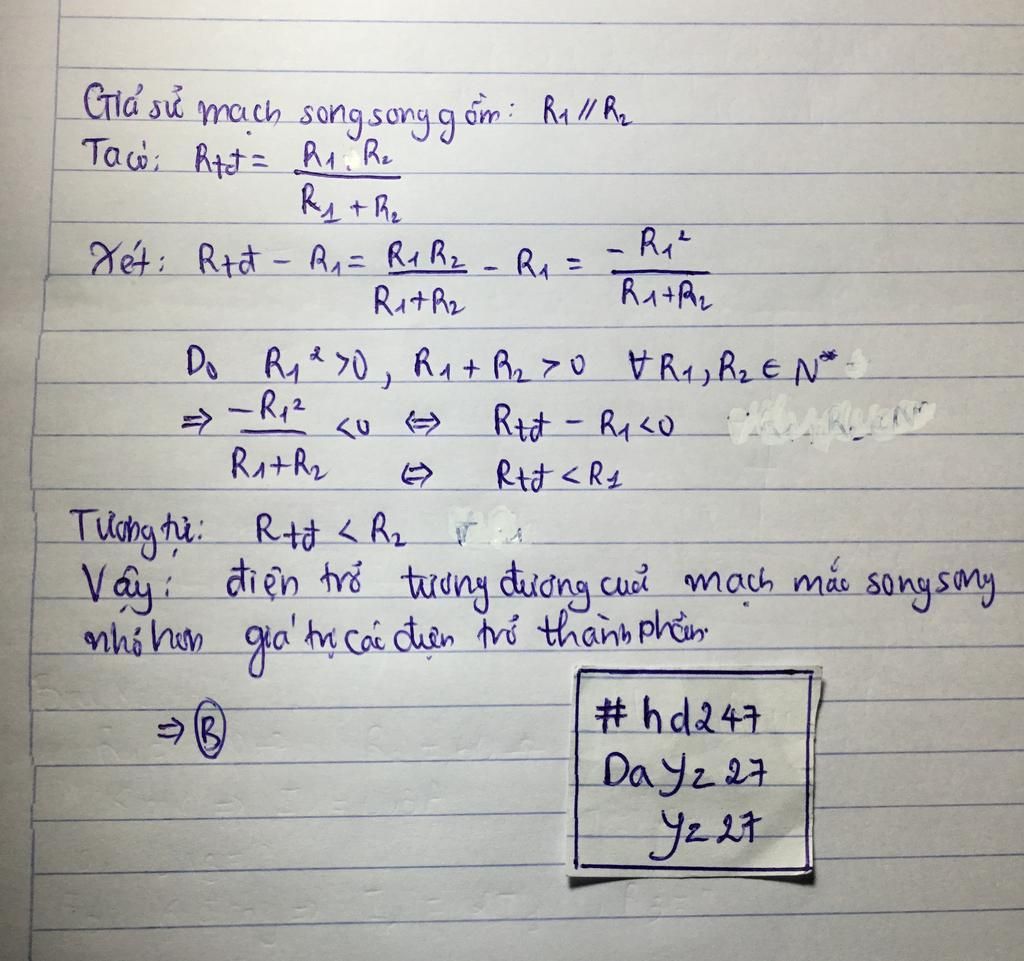 Giả sử mạch song song gồm: R1 // R2
Ta có: Rtđ = R1 . R2 / R1 + R2
Xét: Rtđ - R1 = R1 R2 / R1+R2 - R1 = -R1² / R1+R2
Do R1² >0, R1 + R2 > 0 ∀R1, R2 ∈ N*
⇒ -R1² / R1+R2 <0 ⇔ Rtđ - R1 <0
⇔ Rtđ < R1
Tương tự: Rtđ < R2
Vậy: điện trở tương đương của mạch mắc song song
nhỏ hơn giá trị các điện trở thành phần.
⇒ B
#hd247
Da yz 27
yz 27